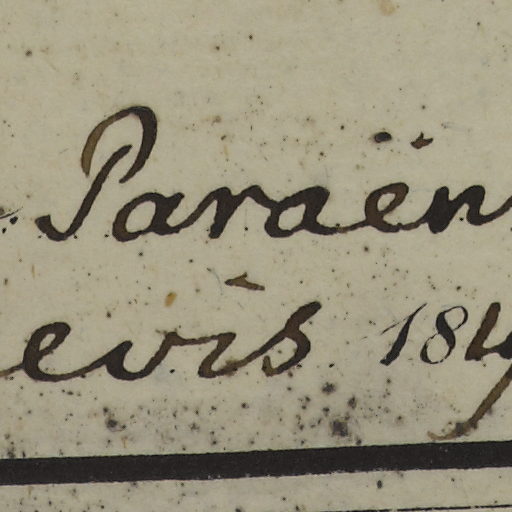 Paraën
evis 184